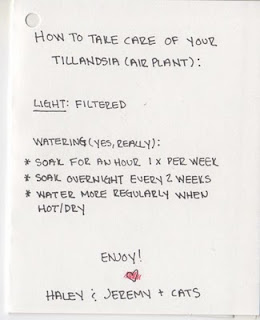 HOW TO TAKE CARE OF YOUR
TILLANDSIA (AIR PLANT):
LIGHT: FILTERED
WATERING (YES, REALLY):
* SOAK FOR AN HOUR 1 X PER WEEK
* SOAK OVERNIGHT EVERY 2 WEEKS
* WATER MORE REGULARLY WHEN
HOT/DRY
ENJOY!
HALEY & JEREMY + CATS